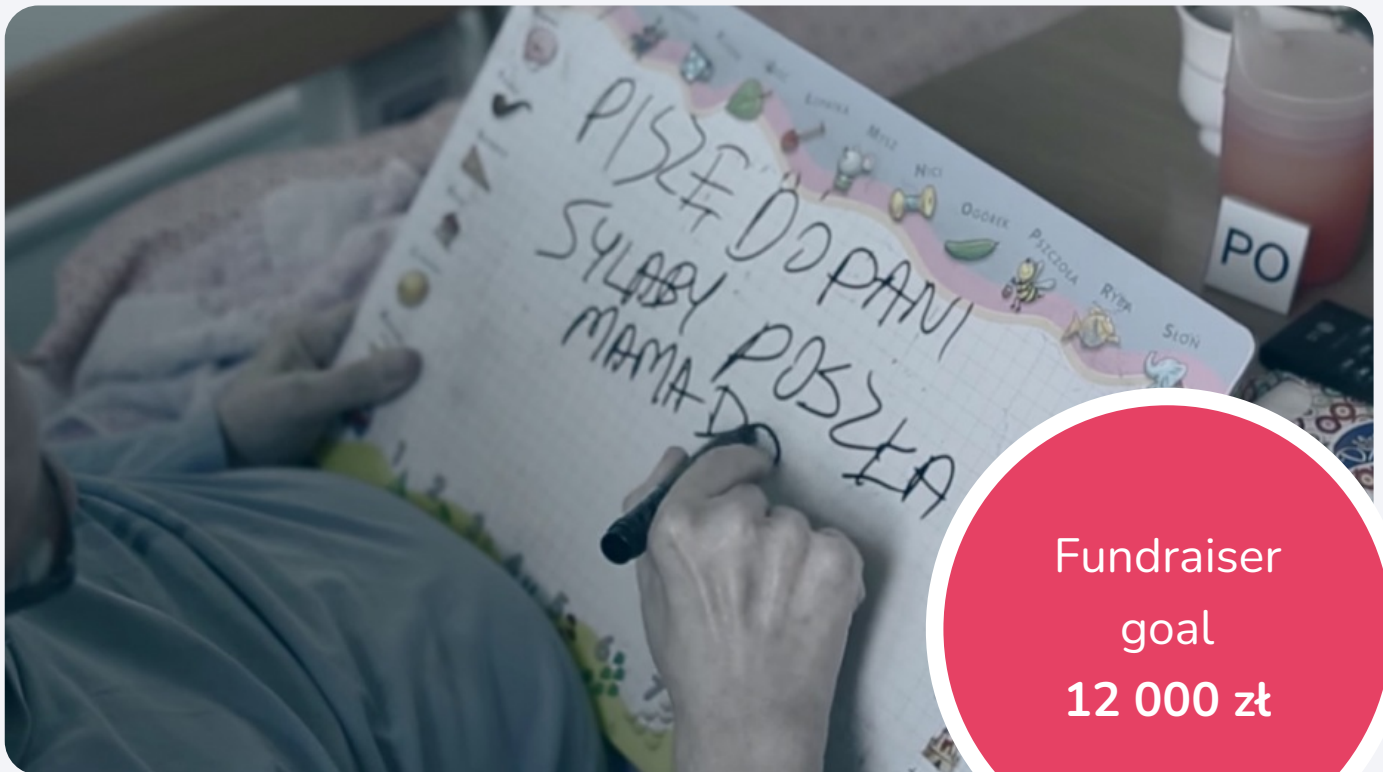 PISZĘ DO PANI
SYLABY POSZŁA
MAMA DO
MYSZ
NICI
OGÓREK
PSZCZOŁA
RYBA
SŁOŃ
PO
1
2
6
7
Fundraiser
goal
12 000 zł